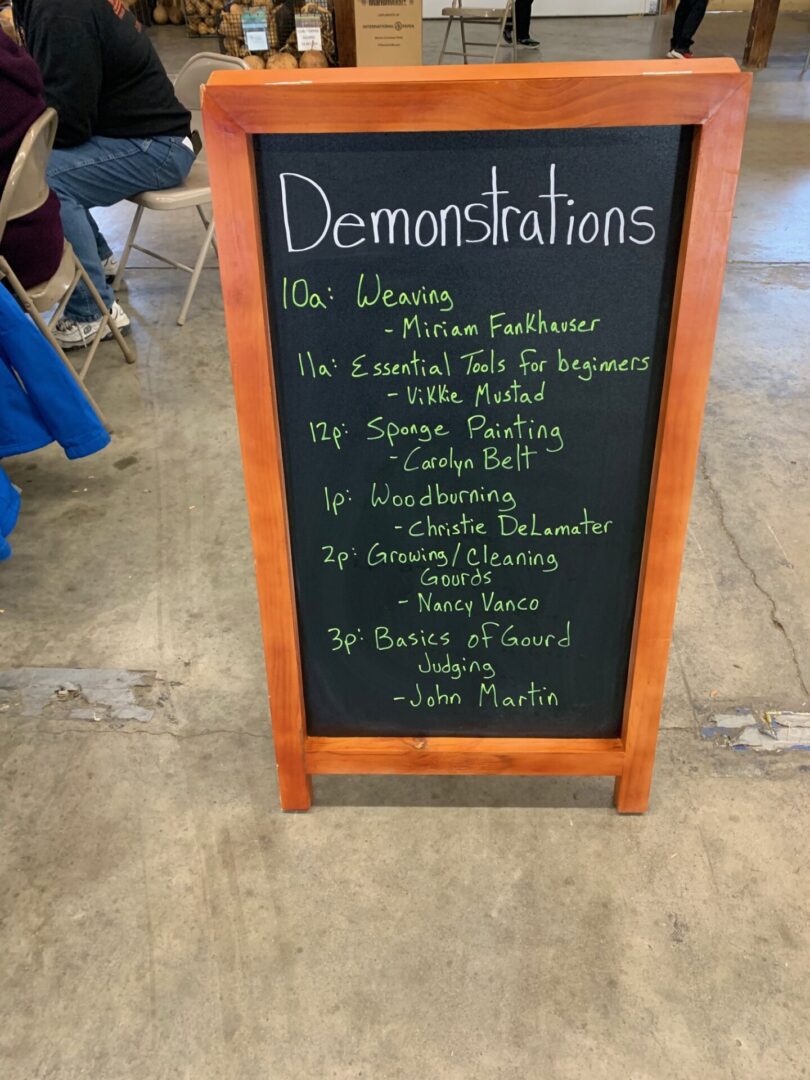 Demonstrations
10a: Weaving
- Miriam Fankhauser
11a: Essential Tools for beginners
- Vikkie Mustad
12p: Sponge Painting
- Carolyn Belt
1p: Woodburning
- Christie DeLamater
2p: Growing/Cleaning
Gourds
- Nancy Vanco
3p: Basics of Gourd
Judging
- John Martin